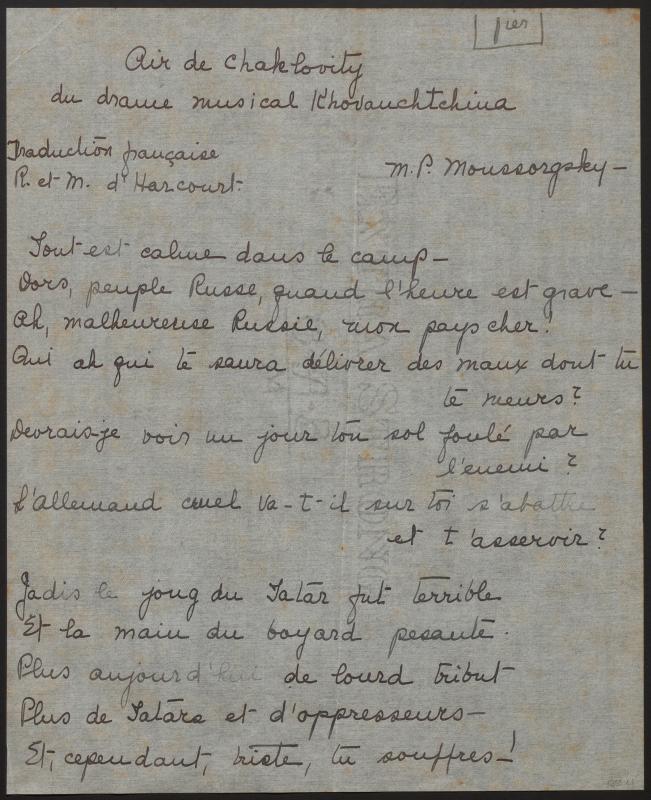 1ier
Air de Chaklovity
du drame musical Khovanchtchina
Traduction française
R. et M. d'Harcourt.
M. P. Moussorgsky —
Tout est calme dans le camp —
Dors, peuple Russe, quand l'heure est grave —
Ah, malheureuse Russie, mon pays cher!
Qui ah qui te saura délivrer des maux dont tu
te meurs?
Devrais-je voir un jour ton sol foulé par
l'enemi?
L'allemand cruel va-t-il sur toi s'abattre
et t'asservoir?
Jadis le joug du Tatar fut terrible
Et la main du boyard pesante.
Plus aujourd'hui de lourd tribut
Plus de Tatars et d'oppresseurs —
Et, cependant, triste, tu souffres —!